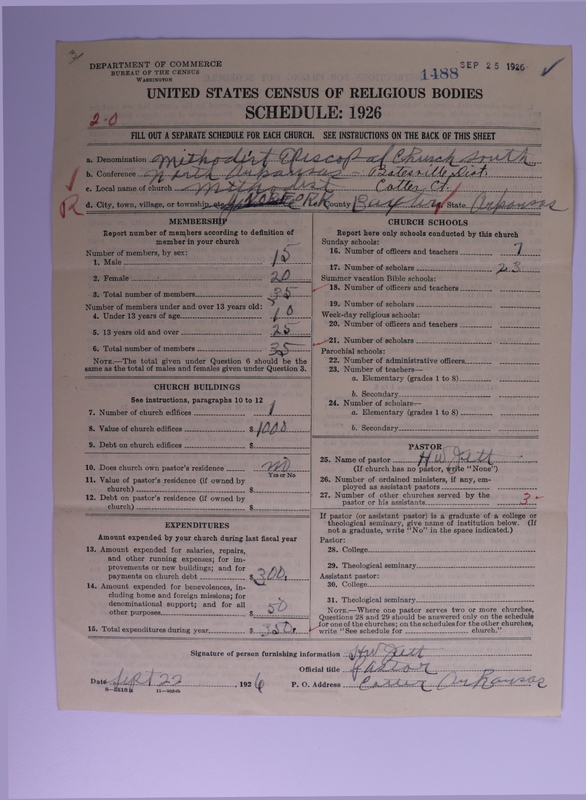 3
DEPARTMENT OF COMMERCE
BUREAU OF THE CENSUS
WASHINGTON
1488
SEP 25 1926
UNITED STATES CENSUS OF RELIGIOUS BODIES
SCHEDULE: 1926
2-0
FILL OUT A SEPARATE SCHEDULE FOR EACH CHURCH. SEE INSTRUCTIONS ON THE BACK OF THIS SHEET
a. Denomination Methodist Episcopal Church South
b. Conference North Arkansas - Batesville Dist.
c. Local name of church Methodist Cotter Ct.
R d. City, town, village, or township, etc. County Baxter State Arkansas
MEMBERSHIP
Report number of members according to definition of
member in your church
Number of members, by sex:
1. Male 15
2. Female 20
3. Total number of members 35
Number of members under and over 13 years old:
4. Under 13 years of age 10
5. 13 years old and over 25
6. Total number of members 35
NOTE.—The total given under Question 6 should be the
same as the total of males and females given under Question 3.
CHURCH BUILDINGS
See instructions, paragraphs 10 to 12
7. Number of church edifices 1
8. Value of church edifices $1000
9. Debt on church edifices $
10. Does church own pastor's residence no
Yes or No
11. Value of pastor's residence (if owned by
church) $
12. Debt on pastor's residence (if owned by
church) $
EXPENDITURES
Amount expended by your church during last fiscal year
13. Amount expended for salaries, repairs,
and other running expenses; for im-
provements or new buildings; and for
payments on church debt $300.
14. Amount expended for benevolences, in-
cluding home and foreign missions; for
denominational support; and for all
other purposes $ 50
15. Total expenditures during year $ 350.
CHURCH SCHOOLS
Report here only schools conducted by this church
Sunday schools:
16. Number of officers and teachers 7
17. Number of scholars 23
Summer vacation Bible schools:
18. Number of officers and teachers
19. Number of scholars
Week-day religious schools:
20. Number of officers and teachers
21. Number of scholars
Parochial schools:
22. Number of administrative officers
23. Number of teachers—
a. Elementary (grades 1 to 8)
b. Secondary
24. Number of scholars—
a. Elementary (grades 1 to 8)
b. Secondary
PASTOR
25. Name of pastor H W Jett
(If church has no pastor, write "None")
26. Number of ordained ministers, if any, em-
ployed as assistant pastors
27. Number of other churches served by the
pastor or his assistants 3-
If pastor (or assistant pastor) is a graduate of a college or
theological seminary, give name of institution below. (If
not a graduate, write "No" in the space indicated.)
Pastor:
28. College
29. Theological seminary
Assistant pastor:
30. College
31. Theological seminary
NOTE.—Where one pastor serves two or more churches,
Questions 28 and 29 should be answered only on the schedule
for one of the churches; on the schedules for the other churches,
write "See schedule for church."
Signature of person furnishing information H W Jett
Official title Pastor
Date Sept 22, 1926 P. O. Address Cotter Arkansas